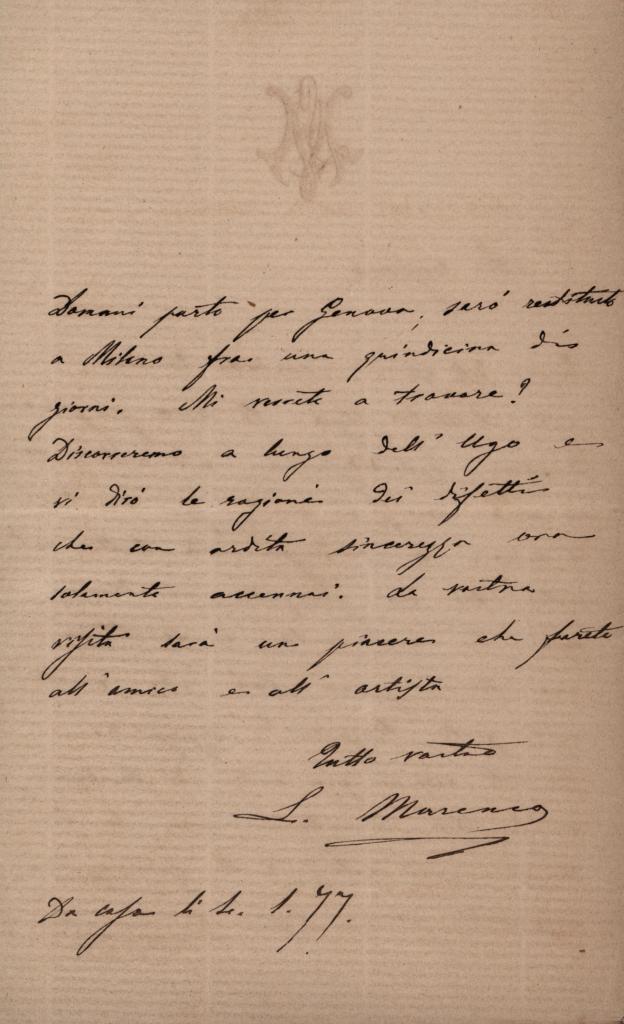 Domani parto per Genova, sarò restituito
a Milano fra una quindicina di
giorni. Mi verrete a trovare?
Discorreremo a lungo dell' Ugo e
vi dirò le ragioni dei difetti
che con ardita sincerezza ora
solamente accennai. La vostra
visita sarà un piacere che farete
all' amico e all' artista
Tutto vostro
L. Marenco
Da casa li 1. 77.